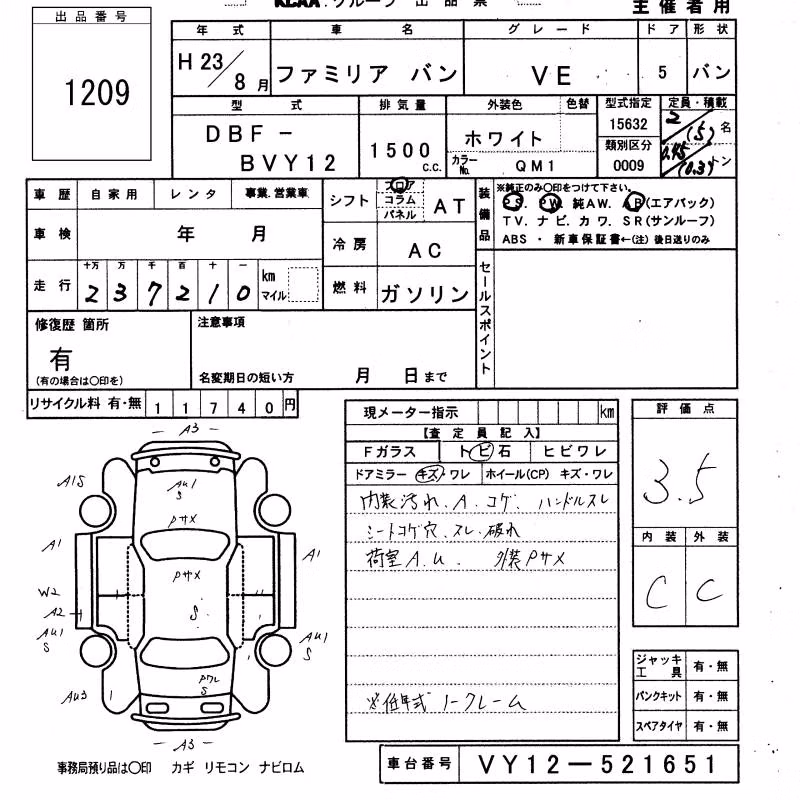 KCAA. グループ 出品票
主催者用
出品番号
1209
年式 車名 グレード ドア 形状
H23/8月 ファミリア バン VE 5 バン
型式 排気量 外装色 色替 型式指定 定員・積載
DBF-BVY12 1500c.c. ホワイト 15632 2/(5)名
カラーNo. QM1 類別区分 0009 0.45/(0.3)トン
車歴 自家用 レンタ 事業.営業車
車検 年 月
走行 十万 万 千 百 十 一
237210 km マイル
シフト フロア コラム パネル AT
冷房 AC
燃料 ガソリン
装備品
※純正のみ○印をつけて下さい。
P.S. P.W. 純AW. AB(エアバック)
TV. ナビ. カワ. SR(サンルーフ)
ABS ・ 新車保証書←(注) 後日送りのみ
セールスポイント
修復歴 箇所
有
(有の場合は○印を)
注意事項
名変期日の短い方 月 日まで
リサイクル料 有・無 11740円
現メーター指示 km
【査定員記入】
Fガラス トビ石 ヒビワレ
ドアミラー キズ・ワレ ホイール(CP) キズ・ワレ
内装汚れ.A.コゲ.ハンドルスレ
シートコゲ穴.スレ.破れ
荷室A.U. 外装Pサメ
※低年式ノークレーム
評価点
3.5
内装 外装
C C
ジャッキ工具 有・無
パンクキット 有・無
スペアタイヤ 有・無
A3
A1S
AU1
S
Pサメ
A1
A1
Pサメ
W2
A2
S
AU1
S
AU1
S
Pワレ
S
AU3
A3
事務局預り品は○印 カギ リモコン ナビロム
車台番号 VY12-521651